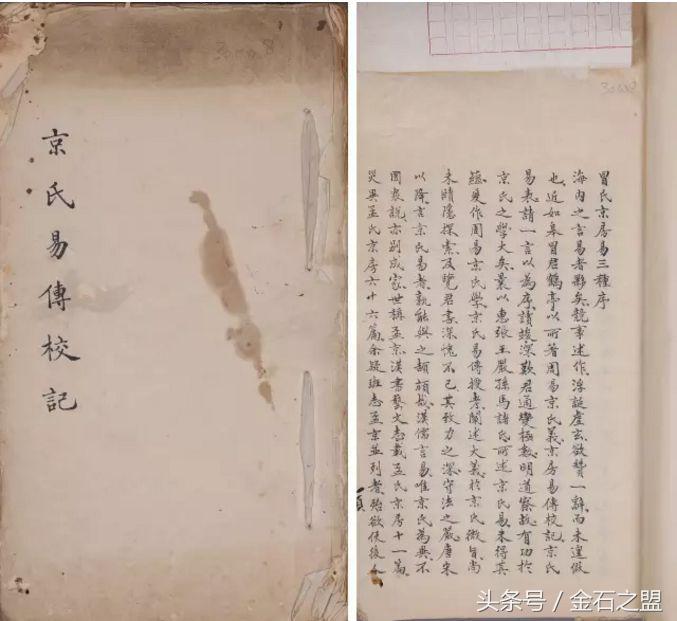 京氏易傳校記
冒氏京房易三種序
海內之言易者夥矣競事述作浮誕虛玄欲贊一辭而未遑假
也近如皋冒君鶴亭以所著周易京氏義京房易傳校記京氏
易表請一言以為序讀竣深歎君通變極數明道察故有功於
京氏之學大矣曩以惠張王嚴孫馬諸氏所述京氏易未得其
蘊爰作周易京氏學京氏易傳搜考闡述大義於京氏微旨尚
未賾隱探索及覽君書深愧不已其致力之深守法之嚴唐宋
以降言京氏易者孰能與之頡頏哉漢儒言易唯京氏為典不
圖衰說亦別成家世稱孟京漢書藝文志載孟氏京房十一篇
災異孟氏京房六十六篇余疑班志孟京並列者殆欲使後人
头条号 / 金石之盟